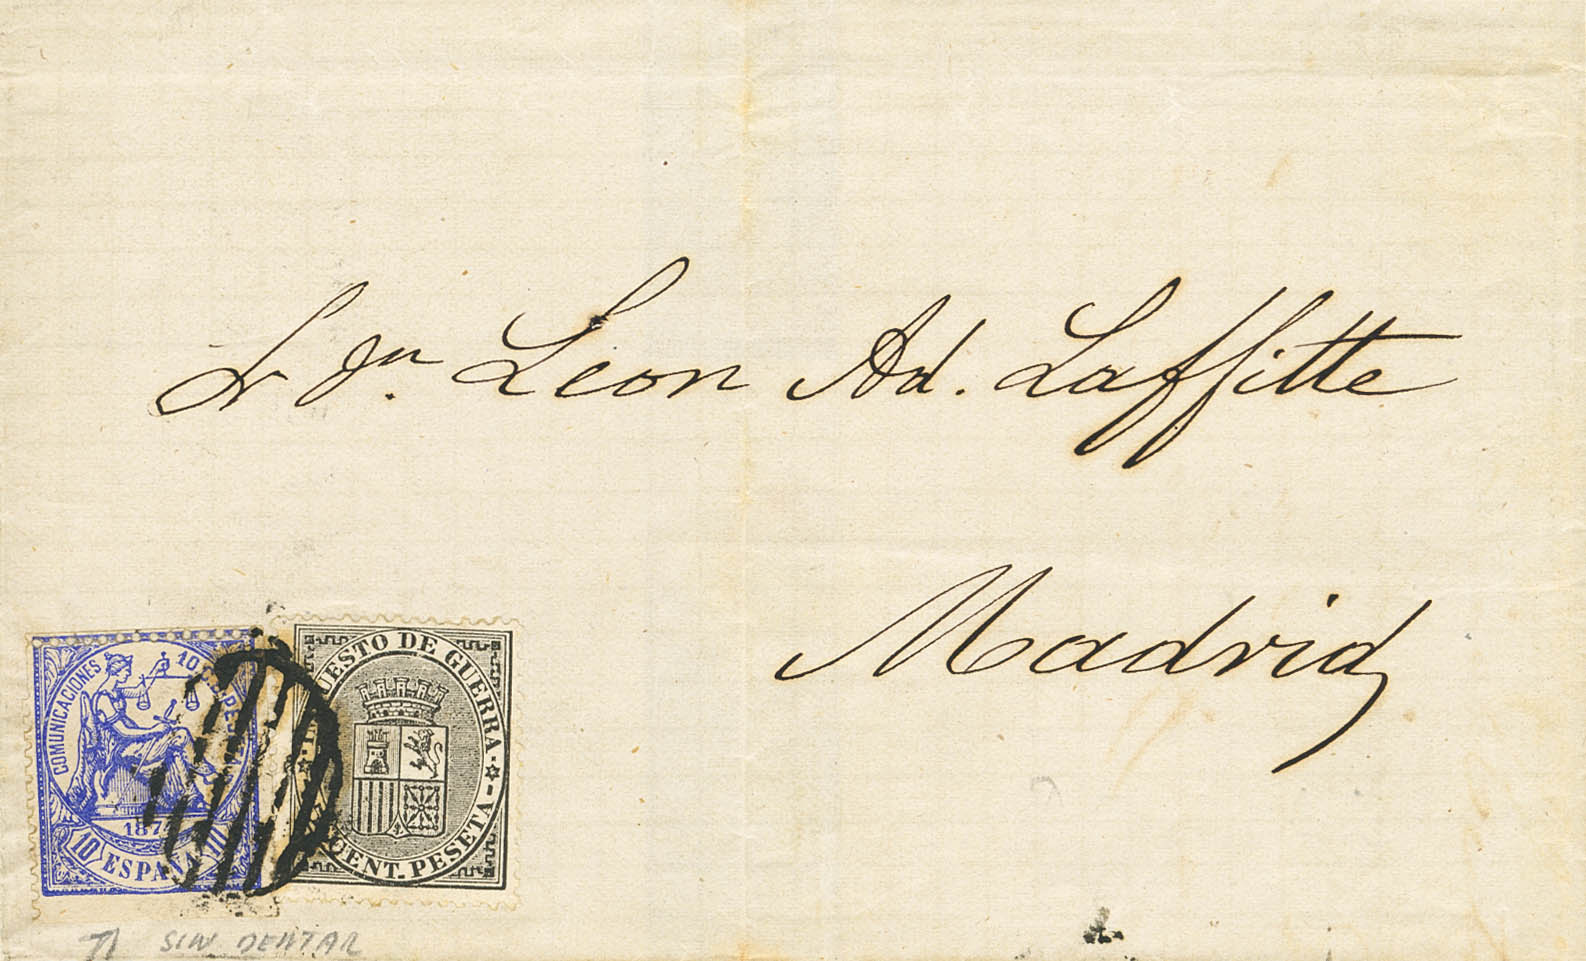 S. Dn. Leon Ad. Laffitte
Madrid
COMUNICACIONES 10
187
10 ESPAÑA 10
UESTO DE GUERRA
CENT. PESETA
SIN DENTAR